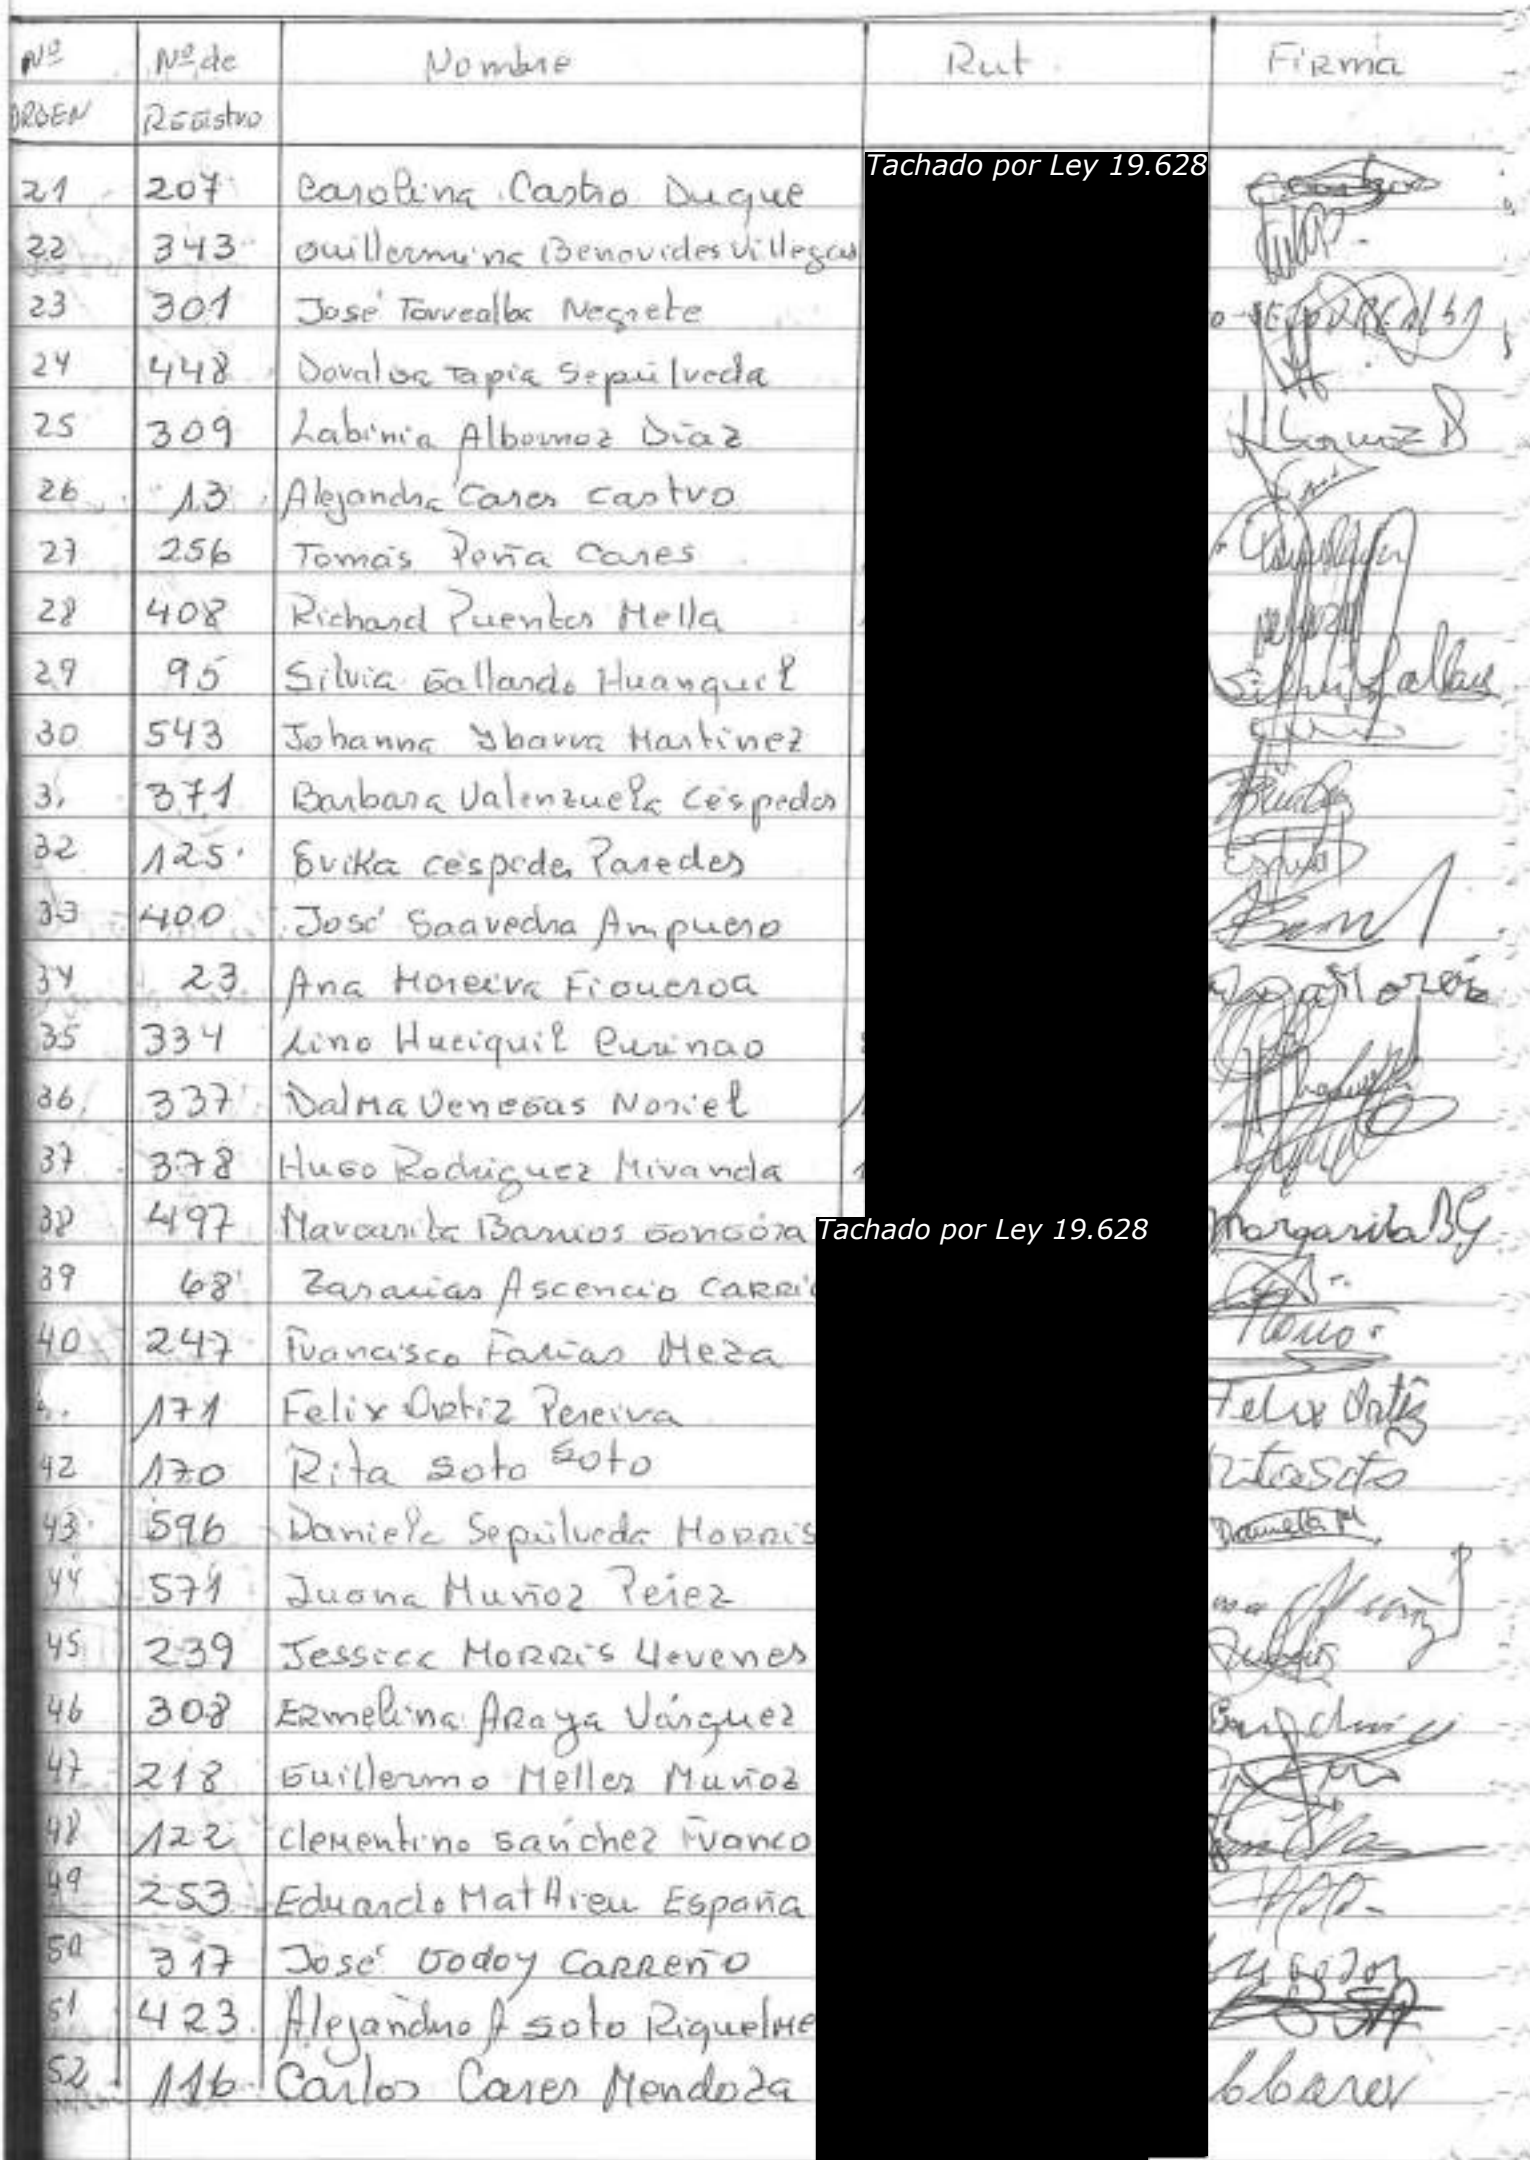 Nº Nº de Nombre Rut. Firma
ORDEN REGistro
Tachado por Ley 19.628
21 207 Carolina Castro Duque
22 343 Guillermina Benavides Villegas
23 301 José Torrealba Negrete
24 448 Tapia Sepúlveda
25 309 Labinia Albornoz Díaz Albornoz D
26 13 Alejandra Cares Castro
27 256 Tomás Peña Cares
28 408 Richard Puentes Mella
29 95 Silvia Gallardo Huanquil
30 543 Johanna Ybarra Martinez
3. 371 Barbara Valenzuela Céspedes
32 125 Erika Céspedes Paredes
33 400 José Saavedra Ampuero
34 23 Ana Moreira Figueroa
35 334 Lino Hueiquil Curinao
36 337 Dalma Venegas Noriel
37 378 Hugo Rodriguez Miranda
38 497 Margarita Barrios Gongóra Tachado por Ley 19.628 Margarita BG
39 68 Ascencio
40 247 Francisco Farias Meza
171 Felix Ortiz Pereira Felix Ortiz
42 170 Rita Soto Soto Rita Soto
43 596 Daniela Sepúlveda Morris Daniela M
44 571 Juana Muñoz Pérez
45 239 Jessica Morris Llevenes
46 308 Ermelina Araya Vásquez
47 218 Guillermo Meller Muñoz
48 122 Clementino Sánchez Franco
49 253 Eduardo Mathieu España
50 317 José Godoy Carreño
51 423 Alejandro A Soto Riquelme
52 116 Carlos Cares Mendoza CCares